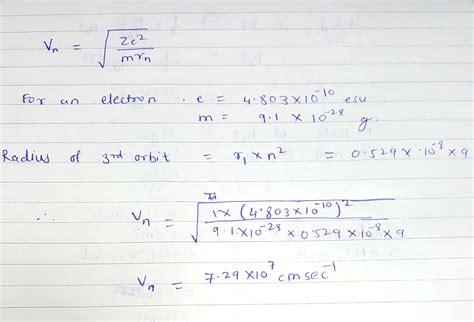 Vn = √(Ze²/mrn)
For an electron .. e = 4.803×10⁻¹⁰ esu
m = 9.1 × 10⁻²⁸ g.
Radius of 3rd orbit = r₁ × n² = 0.529 × 10⁻⁸ × 9
∴ Vn = √(1× (4.803×10⁻¹⁰)² / 9.1×10⁻²⁸ × 0.529×10⁻⁸ × 9)
Vn = 7.29×10⁷ cm sec⁻¹